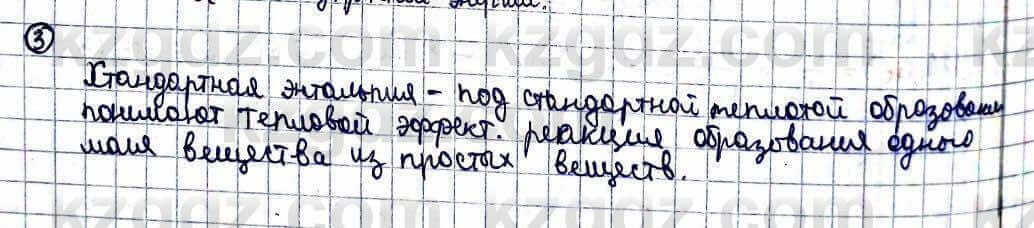 ③
Стандартная энтальпия – под стандартной теплотой образования
понимают тепловой эффект. реакция образования одного
моля вещества из простых веществ.
kzgdz.com